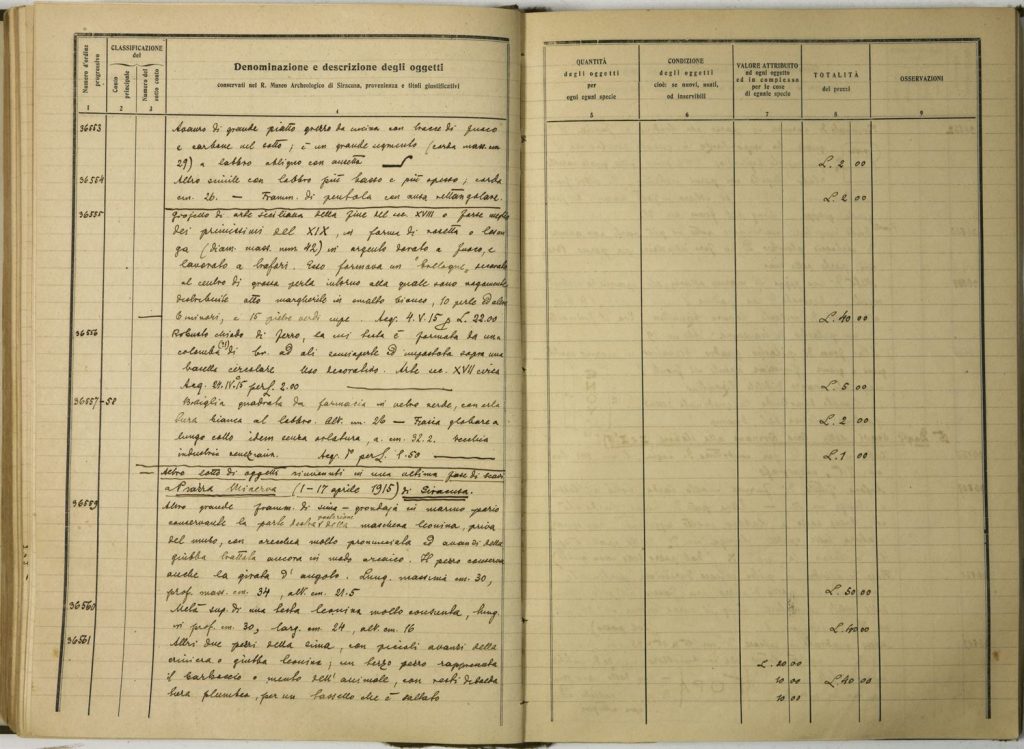 Numero d'ordine progressivo
CLASSIFICAZIONE del
Conto principale
Numero del sotto conto
Denominazione e descrizione degli oggetti
conservati nel R. Museo Archeologico di Siracusa, provenienza e titoli giustificativi
1 2 3 4
36553 Avanzo di grande piatto grezzo da cucina con tracce di fuoco
e carbone nel sotto; è un grande segmento (corda mass. cm.
29) a labbro obliquo con ansetta
36554 Altro simile con labbro più basso e più spesso; corda
cm. 26. — Framm. di pentola con ansa rettangolare.
36555 Gioiello di arte siciliana della fine del sec. XVIII o forse meglio
dei primissimi del XIX, in forma di rosetta o losan
ga (diam. mass. mm. 42) in argento dorato a fuoco, e
lavorato a trafori. Esso formava un
al centro di grossa perla intorno alla quale sono vagamente
distribuite otto margherite in smalto bianco, 10 perle ed altre
6 minori, e 15 pietre verdi cupe. Acq. 4.V.15 p. L. 22.00
36556 Robusto chiodo di ferro, la cui testa è formata da una
colomba (?) di br. ad ali semiaperte ed impostata sopra una
basetta circolare. Uso decorativo. Arte sec. XVII circa
Acq. 29.IV.15 per L. 2.00
36557-58 Bottiglia quadrata da farmacia in vetro verde, con orla
tura bianca al labbro. Alt. cm. 26 — Fiasca globare a
lungo collo idem senza orlatura, a. cm. 32.2. Vecchia
industria veneziana. Acq. per L. 1.50
Altro lotto di oggetti rinvenuti in una ultima fase di scavi
a Piazza Minerva (1-17 aprile 1915) di Siracusa.
36559 Altro grande framm. di sima-grondaja in marmo pario
conservante la parte destra posteriore della maschera leonina, priva
del muso, con orecchia molto pronunciata ed avanzi della
giubba trattata ancora in modo arcaico. Il pezzo conserva
anche la girata d'angolo. Lung. massima cm. 30,
prof. mass. cm. 34, alt. cm. 21.5
36560 Metà sup. di una testa leonina molto consunta, lung.
in prof. cm. 30, larg. cm. 24, alt. cm. 16
36561 Altri due pezzi della sima, con piccoli avanzi della
criniera o giubba leonina; un terzo pezzo rappresenta
il barbaccio o mento dell'animale, con resti di salda
tura plumbea, per un tassello che è saltato
QUANTITÀ degli oggetti per ogni egual specie
CONDIZIONE degli oggetti cioè: se nuovi, usati, od inservibili
VALORE ATTRIBUITO ad ogni oggetto ed in complesso per le cose di eguale specie
TOTALITÀ dei prezzi
OSSERVAZIONI
5 6 7 8 9
L. 2 00
L. 2 00
L. 40 00
L. 5 00
L. 2 00
L. 1 00
L. 50 00
L. 40 00
L. 20 00
10 00 L. 40 00
10 00